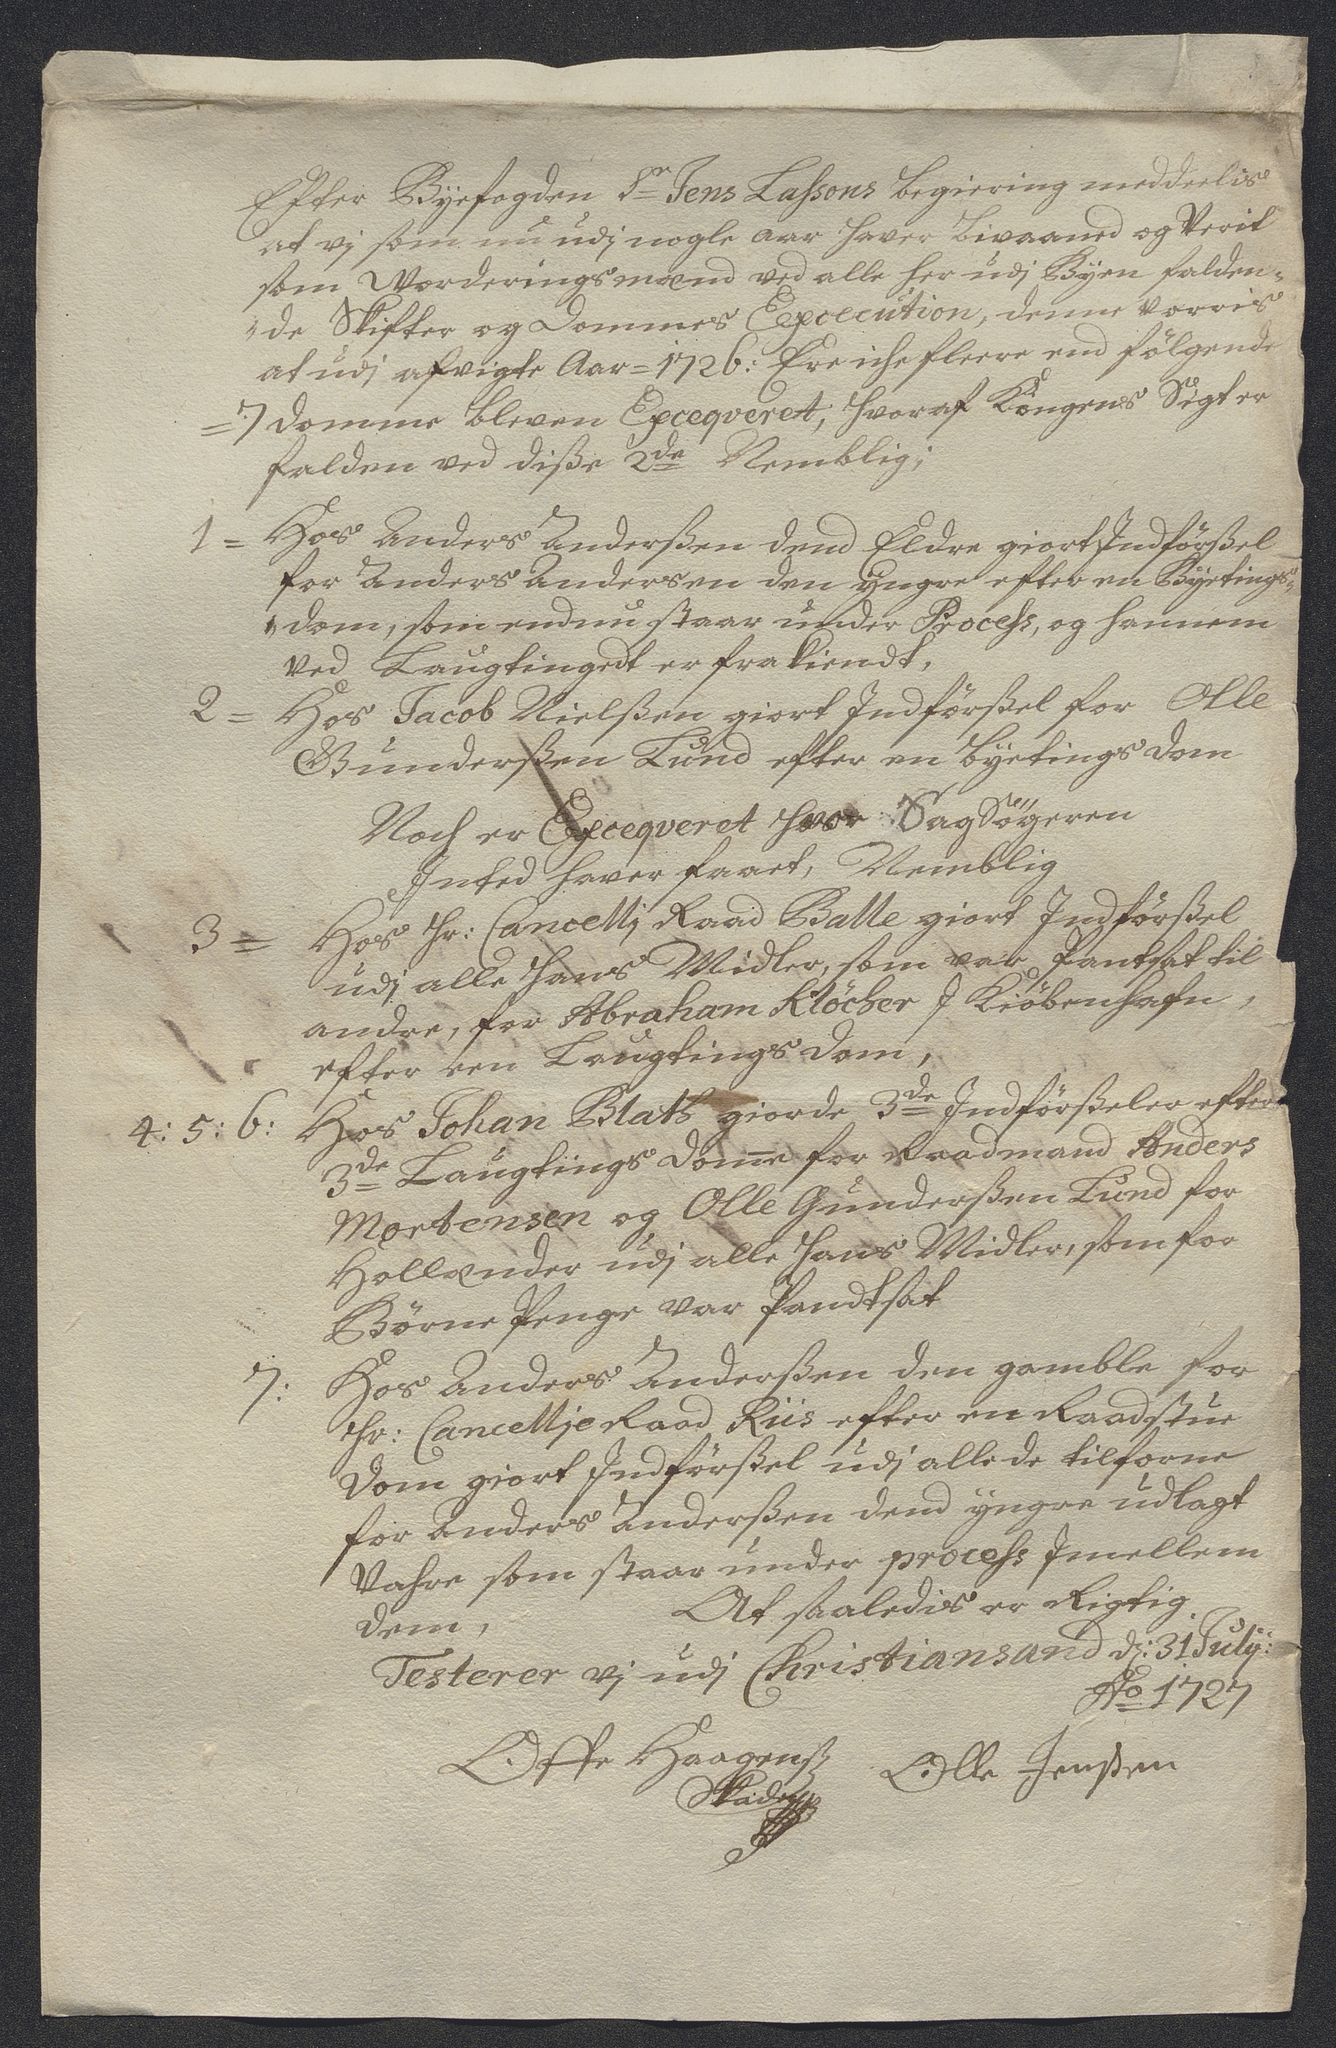 Efter Byefogden Sr Jens Lassons begiering meddeelis
at vj som nu udj nogle aar haver bivaaned og Verit
som Vorderingsmænd ved alle her udj Byen falden-
de Skifter og Dommes Execution, denne
at udj afvigte Aar = 1726: Ere iche fleere end fölgende
= 7 domme bleven Exceqveret, hvoraf Kongens Sigt er
falden ved disse 2de Nemblig;
1 = Hos Anders Anderßen dend Eldre giort Indförßel
for Anders Andersen den yngre efter en Byetings-
dom, som endnu staar under Process, og hannem
ved Laugtinget er frakiendt,
2 = Hos Jacob Nielßen giort Indförßel for Olle
Gunderßen Lund efter en byetings dom
Noch er Exceqveret hvor Sagsögeren
Inted haver faaet, Nemblig
3 = Hos Hr: Cancellj Raad Balle giort Indförßel
udj alle hans Midler, som var Pantsat til
andre, for Abraham Klöcher J Kiöbenhafn,
efter een Laugtings dom,
4: 5: 6: Hos Johan Blats giorde 3de Indförßeler efter
3de Laugtings domme for Raadmand Anders
Mortensen og Olle Gunderßen Lund for
Hollænder udj alle hans Midler, som for
Börne Penge var Pandtsat
7: Hos Anders Anderßen den gamble for
Hr: Cancellje Raad Riis efter en Raadstue
dom giort Indförßel udj alle de tilforne
for Anders Anderßen dend yngre udlagt
Vahre som staar under process Jmellem
dem, At saaledis er Rigtig
Testerer vj udj Christiansand d: 31 July:
Ao 1727
Offe Haagenß Olle Jenßen